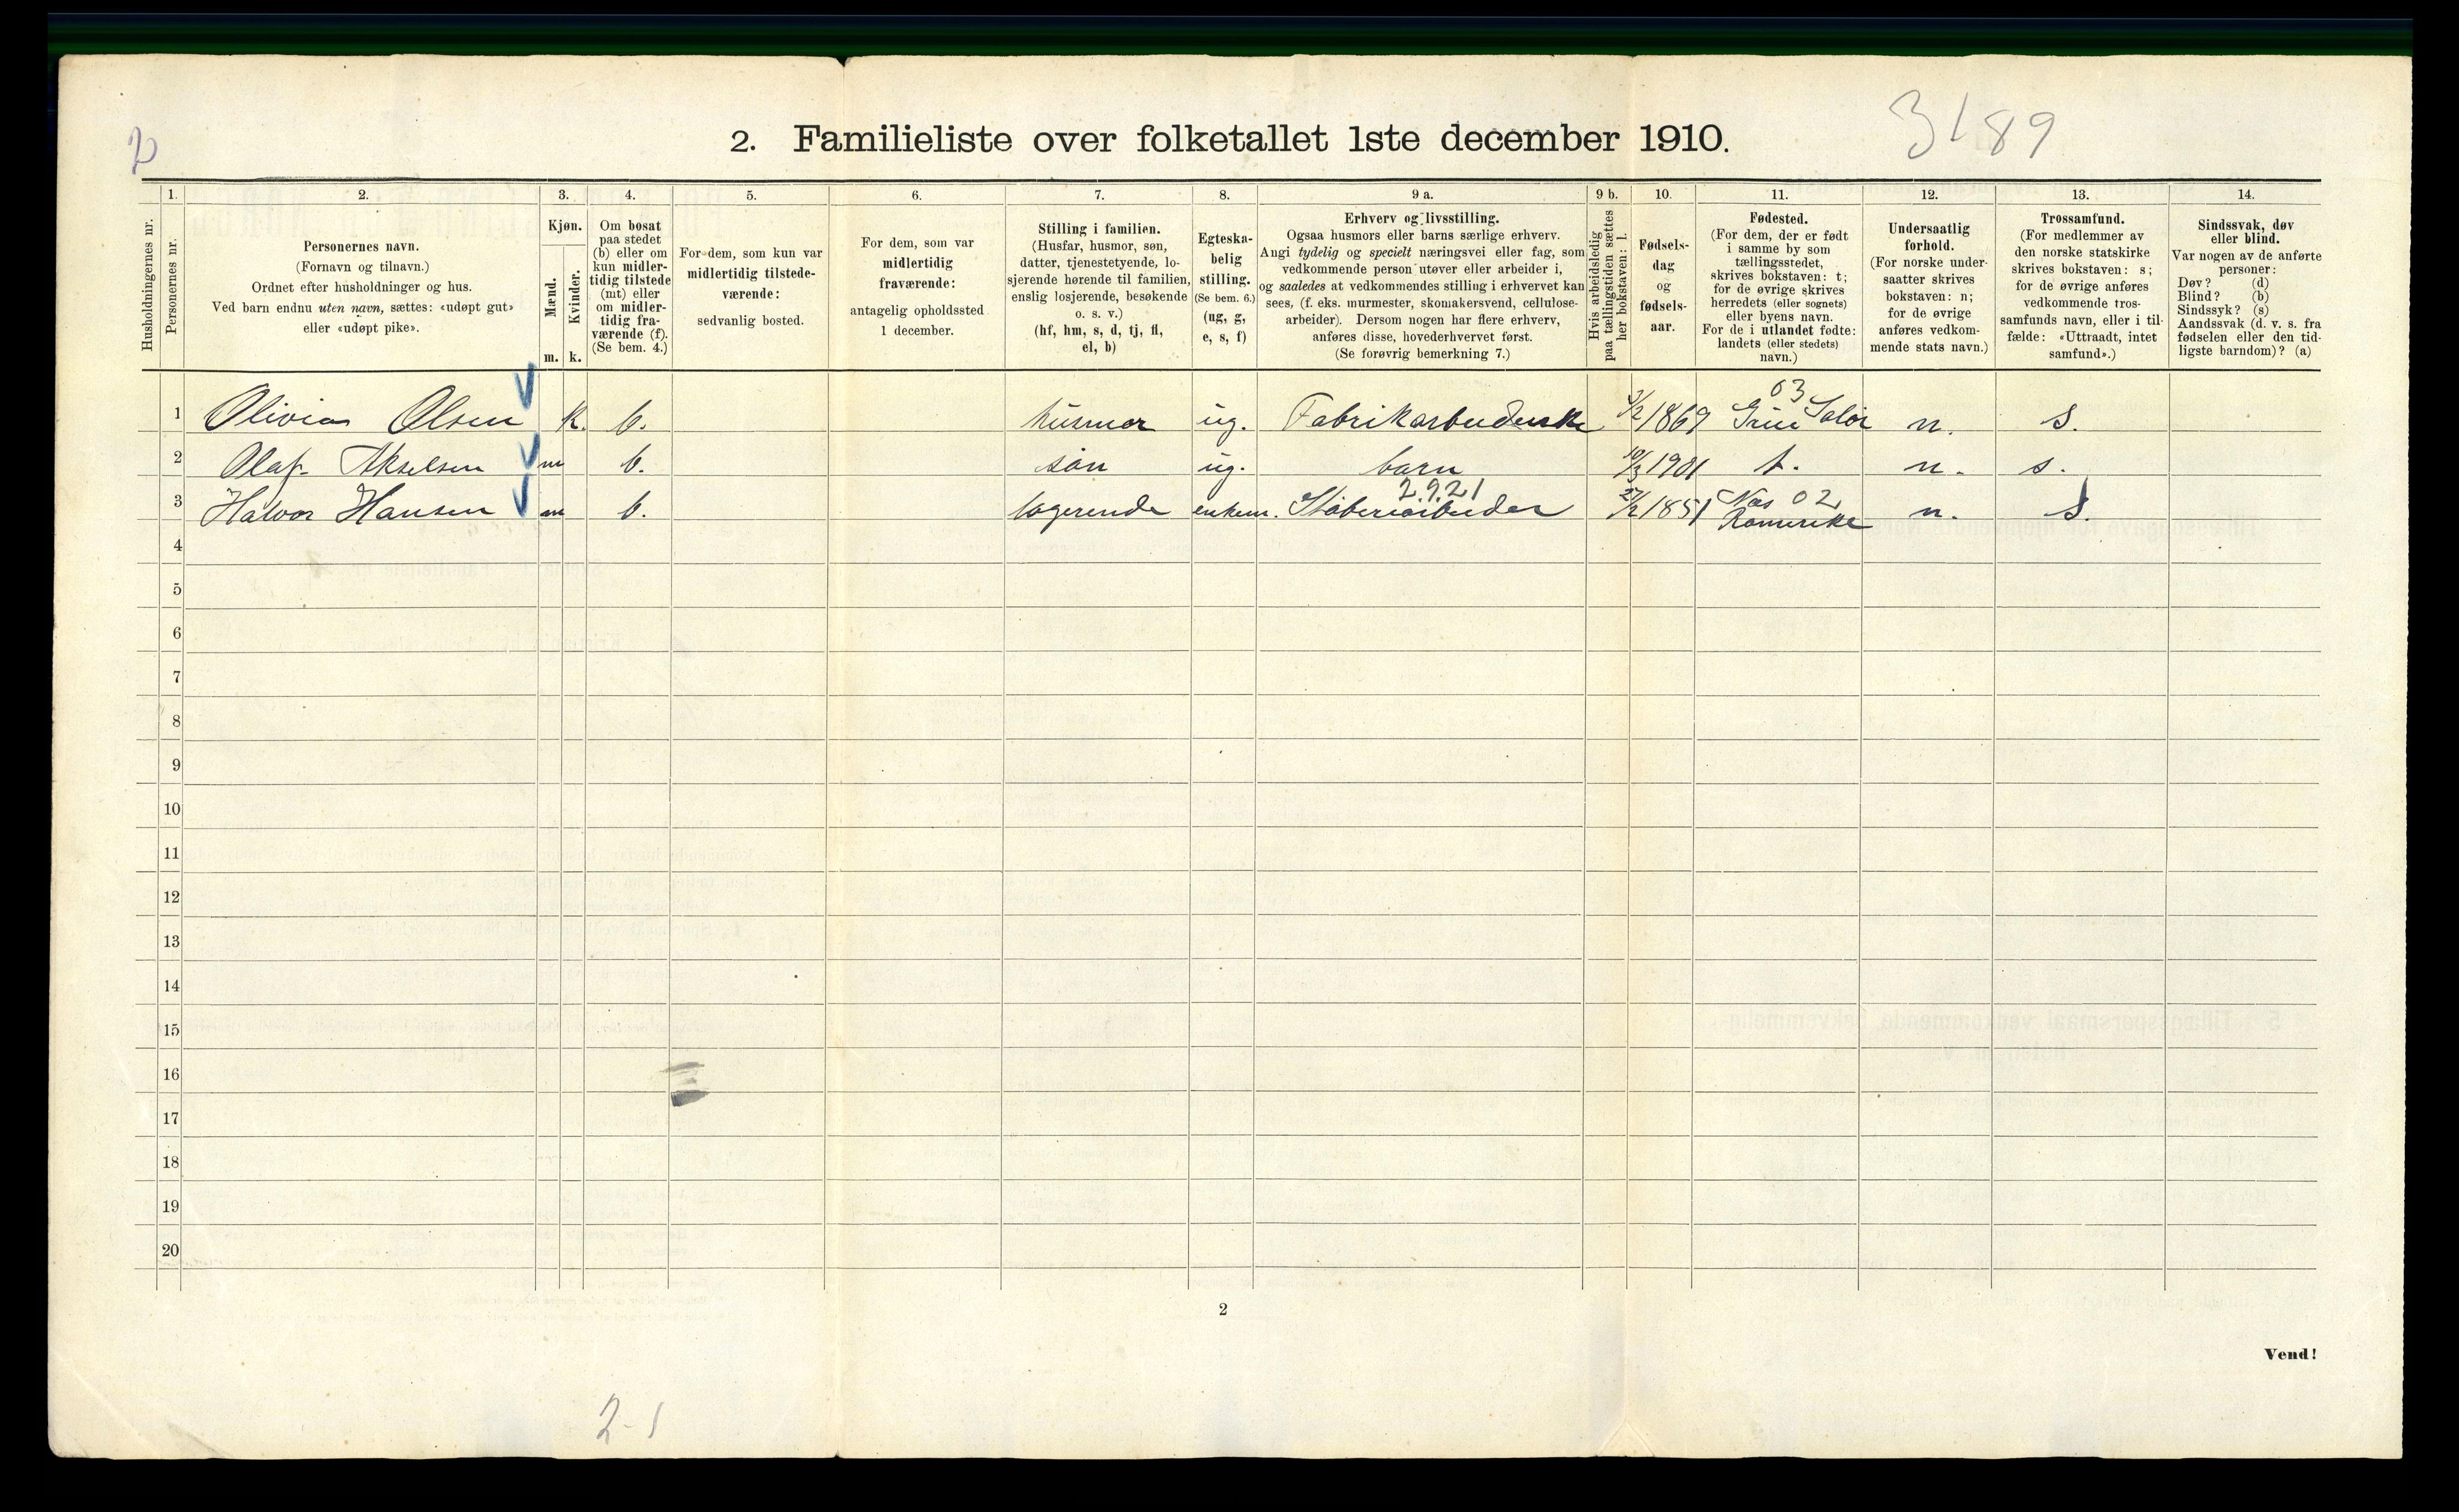 2. Familieliste over folketallet 1ste december 1910.
3189
Husholdningernes nr.
1.
Personernes nr.
2.
Personernes navn.
(Fornavn og tilnavn.)
Ordnet efter husholdninger og hus.
Ved barn endnu uten navn, sættes: «udøpt gut»
eller «udøpt pike».
3.
Kjøn.
Mænd.
Kvinder.
m. k.
4.
Om bosat
paa stedet
(b) eller om
kun midler-
tidig tilstede
(mt) eller
om midler-
tidig fra-
værende (f).
(Se bem. 4.)
5.
For dem, som kun var
midlertidig tilstede-
værende:
sedvanlig bosted.
6.
For dem, som var
midlertidig
fraværende:
antagelig opholdssted
1 december.
7.
Stilling i familien.
(Husfar, husmor, søn,
datter, tjenestetyende, lo-
sjerende hørende til familien,
enslig losjerende, besøkende
o. s. v.)
(hf, hm, s, d, tj, fl,
el, b)
8.
Egteska-
belig
stilling.
(Se bem. 6.)
(ug, g,
e, s, f)
9 a.
Erhverv og livsstilling.
Ogsaa husmors eller barns særlige erhverv.
Angi tydelig og specielt næringsvei eller fag, som
vedkommende person utøver eller arbeider i,
og saaledes at vedkommendes stilling i erhvervet kan
sees, (f. eks. murmester, skomakersvend, cellulose-
arbeider). Dersom nogen har flere erhverv,
anføres disse, hovederhvervet først.
(Se forøvrig bemerkning 7.)
9 b.
Hvis arbeidsledig
paa tællingstiden sættes
her bokstaven: l.
10.
Fødsels-
dag
og
fødsels-
aar.
11.
Fødested.
(For dem, der er født
i samme by som
tællingsstedet,
skrives bokstaven: t;
for de øvrige skrives
herredets (eller sognets)
eller byens navn.
For de i utlandet fødte:
landets (eller stedets)
navn.)
12.
Undersaatlig
forhold.
(For norske under-
saatter skrives
bokstaven: n;
for de øvrige
anføres vedkom-
mende stats navn.)
13.
Trossamfund.
(For medlemmer av
den norske statskirke
skrives bokstaven: s;
for de øvrige anføres
vedkommende tros-
samfunds navn, eller i til-
fælde: «Uttraadt, intet
samfund».)
14.
Sindssvak, døv
eller blind.
Var nogen av de anførte
personer:
Døv? (d)
Blind? (b)
Sindssyk? (s)
Aandssvak (d. v. s. fra
fødselen eller den tid-
ligste barndom)? (a)
03
1 Olivia Olsen k. b. husmor ug. Fabrikarbeiderske 1869 Grue Solør n. s.
2 Olaf Akselsen m b. søn ug. barn 10/3 1901 t. n. s.
2.9.21
3 Halvor Hansen m b. logerende enkem. Støberiarbeider 27/2 1851 Næs 02 Romerike n. s.
4
5
6
7
8
9
10
11
12
13
14
15
16
17
18
19
20
2
Vend!
2-1